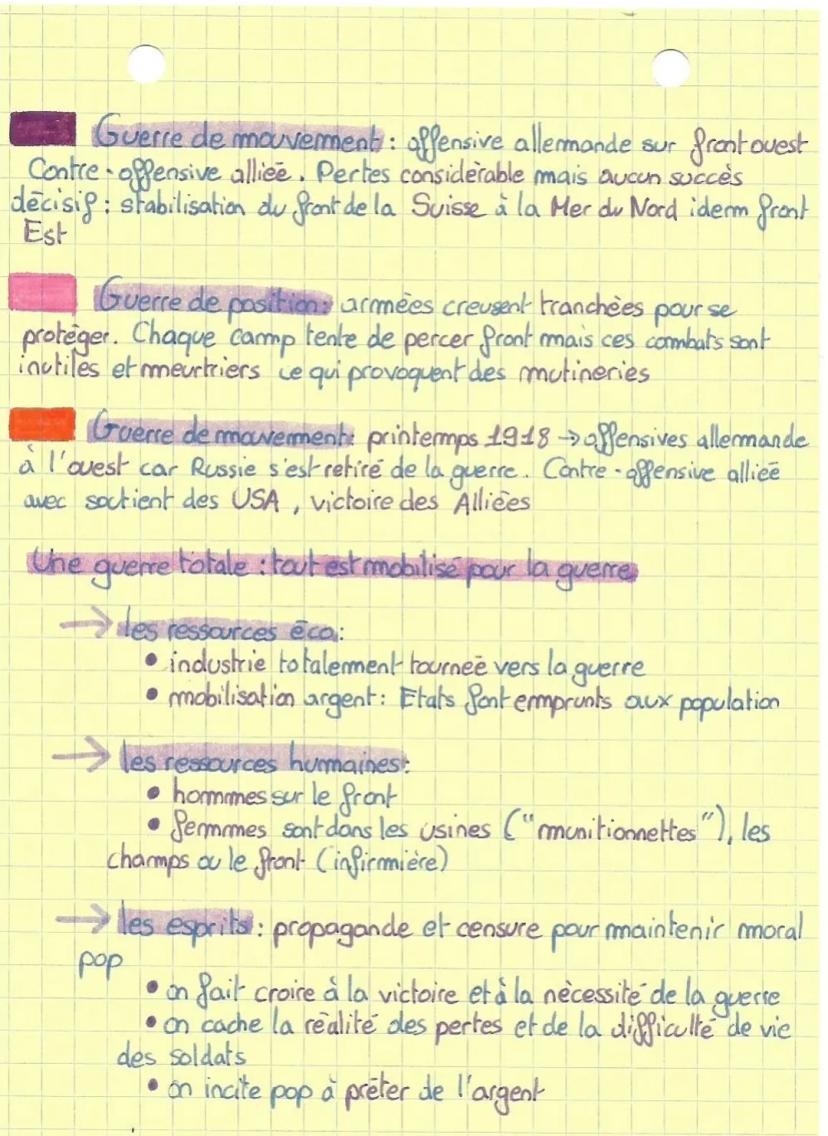 Guerre de mouvement : offensive allemande sur front ouest
Contre-offensive alliée. Pertes considérable mais aucun succès
décisif : stabilisation du front de la Suisse à la Mer du Nord idem front
Est
Guerre de position : armées creusent tranchées pour se
protéger. Chaque camp tente de percer front mais ces combats sont
inutiles et meurtriers ce qui provoquent des mutineries
Guerre de mouvement : printemps 1918 → offensives allemande
à l'ouest car Russie s'est retiré de la guerre. Contre-offensive alliée
avec soutient des USA, victoire des Alliées
Une guerre totale : tout est mobilisé pour la guerre
→ les ressources éco :
• industrie totalement tournée vers la guerre
• mobilisation argent : Etats font emprunts aux population
→ les ressources humaines :
• hommes sur le front
• femmes sont dans les usines ("munitionnettes"), les
champs ou le front (infirmière)
→ les esprits : propagande et censure pour maintenir moral
pop
• on fait croire à la victoire et à la nécessité de la guerre
• on cache la réalité des pertes et de la difficulté de vie
des soldats
• on incite pop à prêter de l'argent